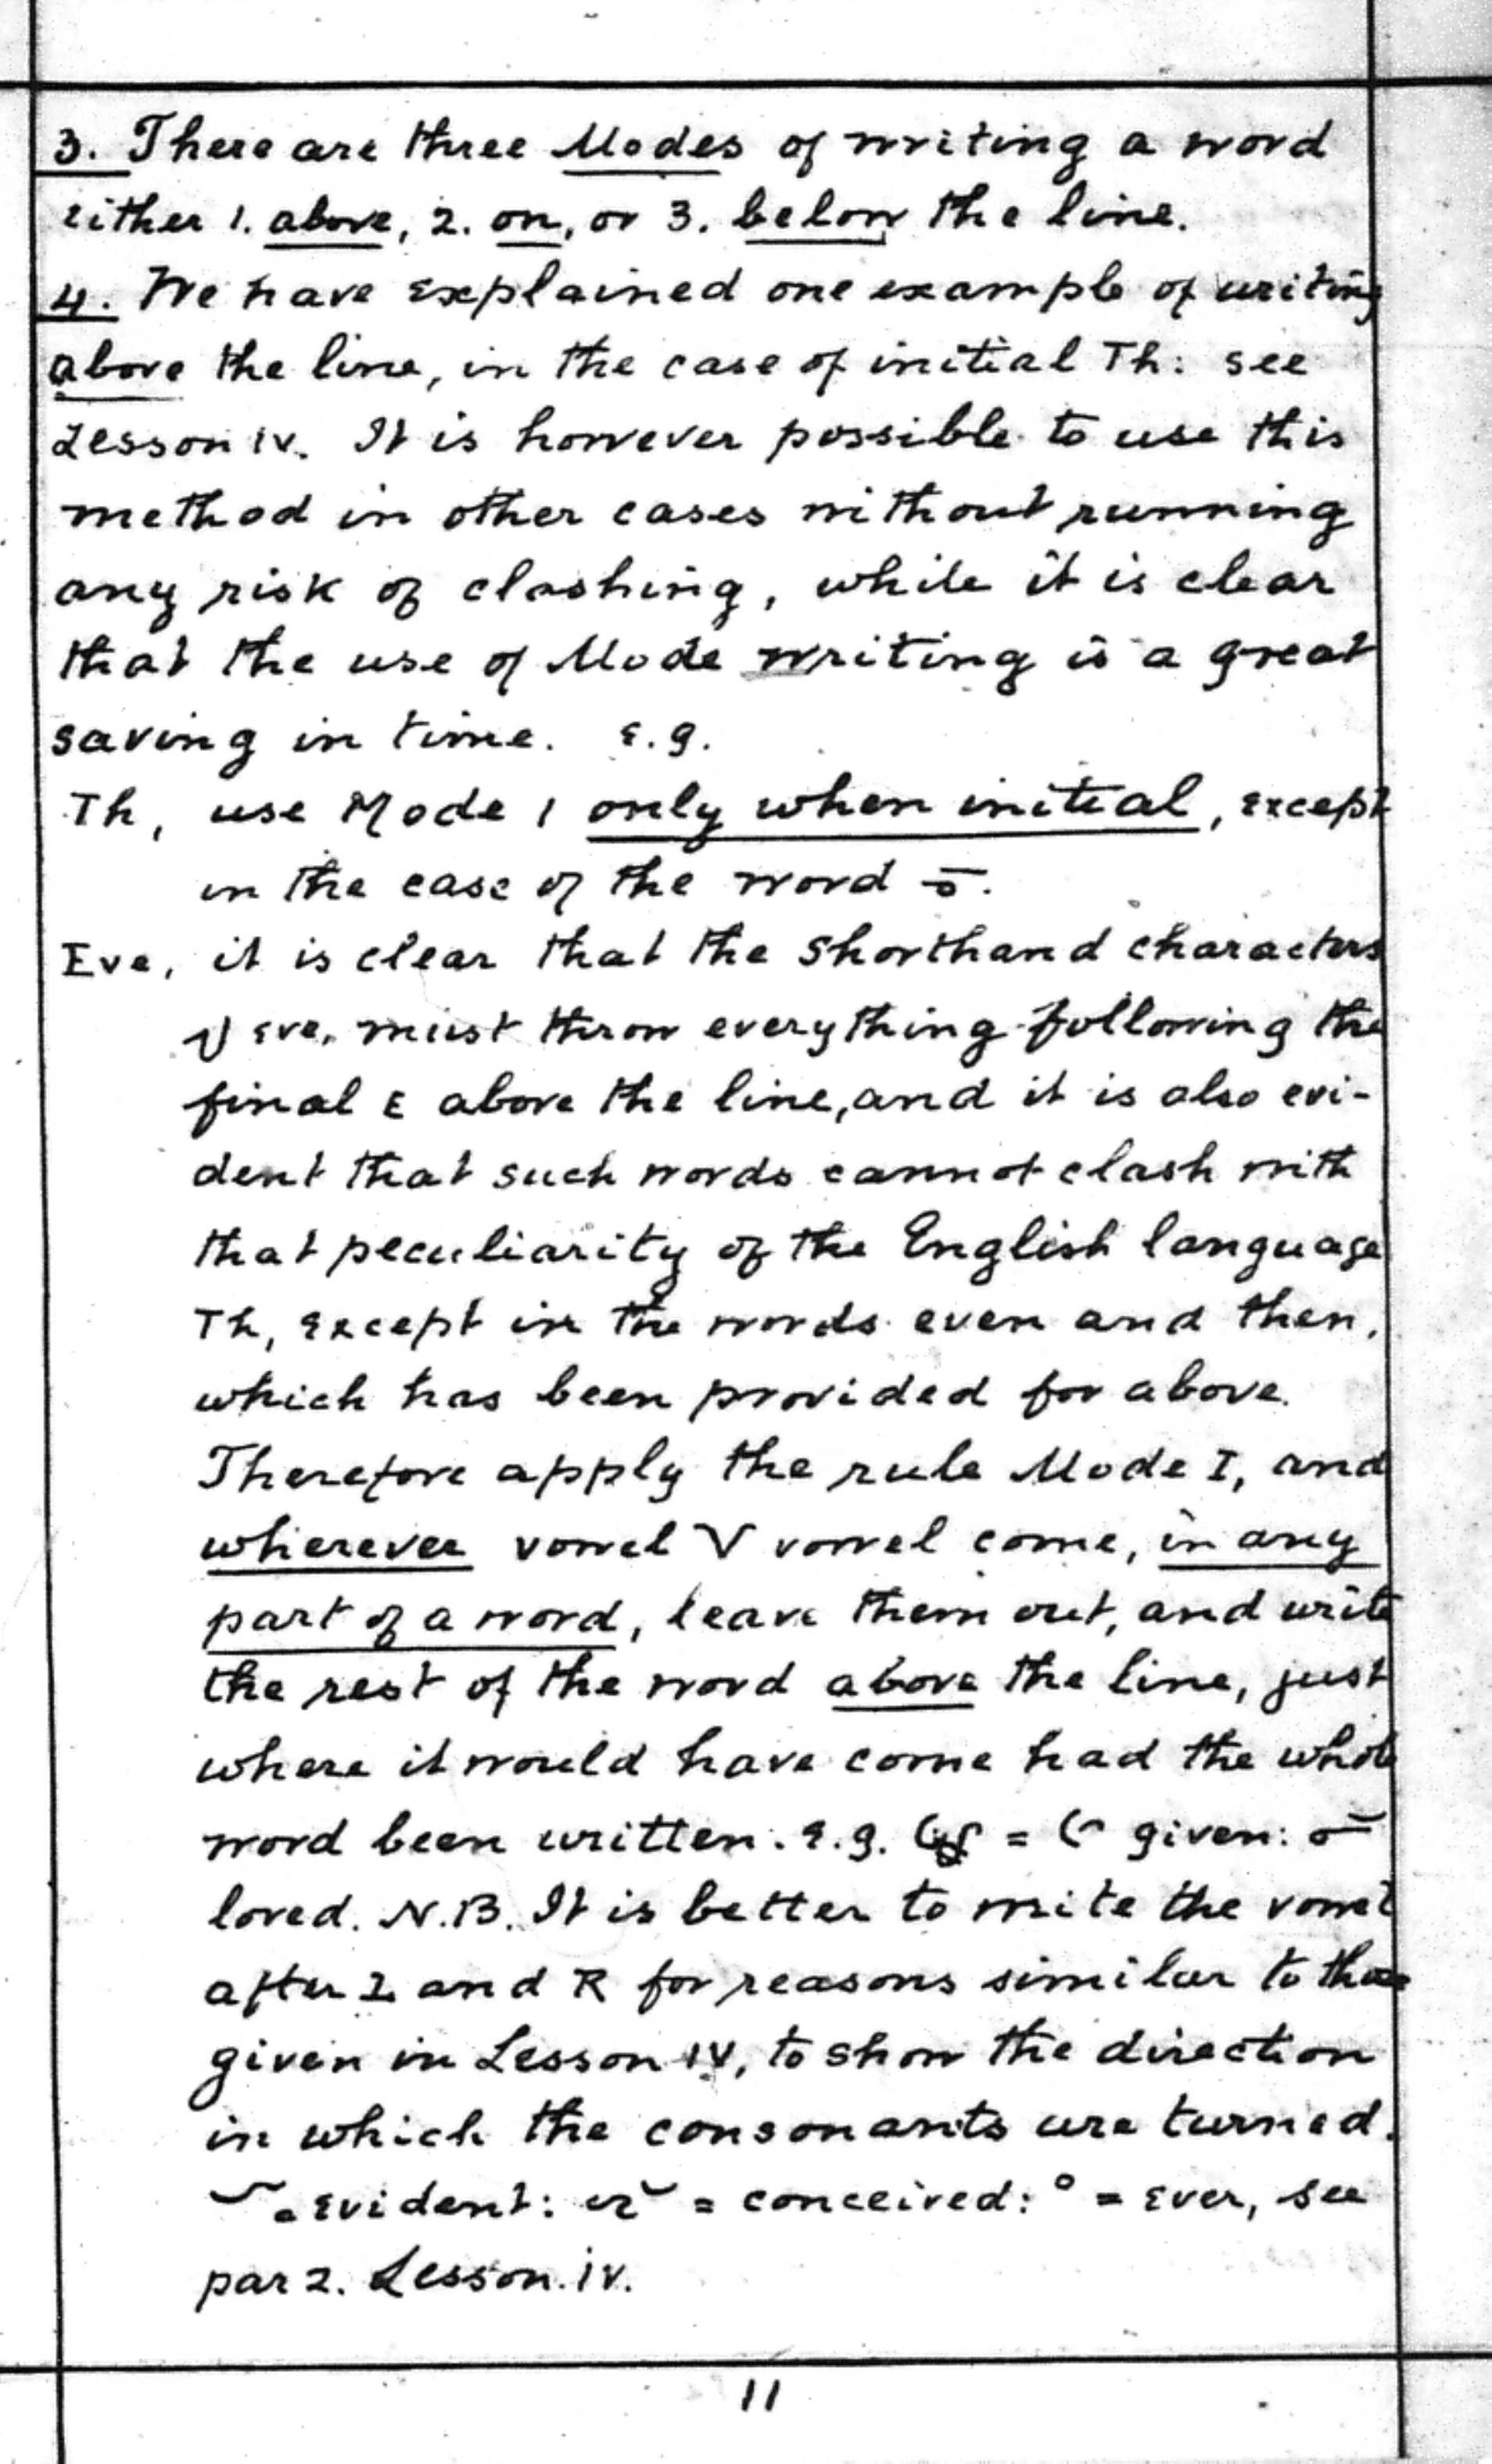 3. There are three Modes of writing a word
either 1. above, 2. on, or 3. below the line.
4. We have explained one example of writing
above the line, in the case of initial Th: see
Lesson IV. It is however possible to use this
method in other cases without running
any risk of clashing, while it is clear
that the use of Mode writing is a great
saving in time. e.g.
Th, use Mode 1 only when initial, except
in the case of the word
Eve, it is clear that the Shorthand characters
eve, must throw everything following the
final E above the line, and it is also evi-
dent that such words cannot clash with
that peculiarity of the English language
Th, except in the words even and then,
which has been provided for above.
Therefore apply the rule Mode I, and
wherever vowel V vowel come, in any
part of a word, leave them out, and write
the rest of the word above the line, just
where it would have come had the whole
word been written. e.g. = given:
loved. N.B. It is better to write the vowel
after L and R for reasons similar to those
given in Lesson IV, to show the direction
in which the consonants are turned.
= evident: = conceived: = ever, see
par 2. Lesson. iv.
11